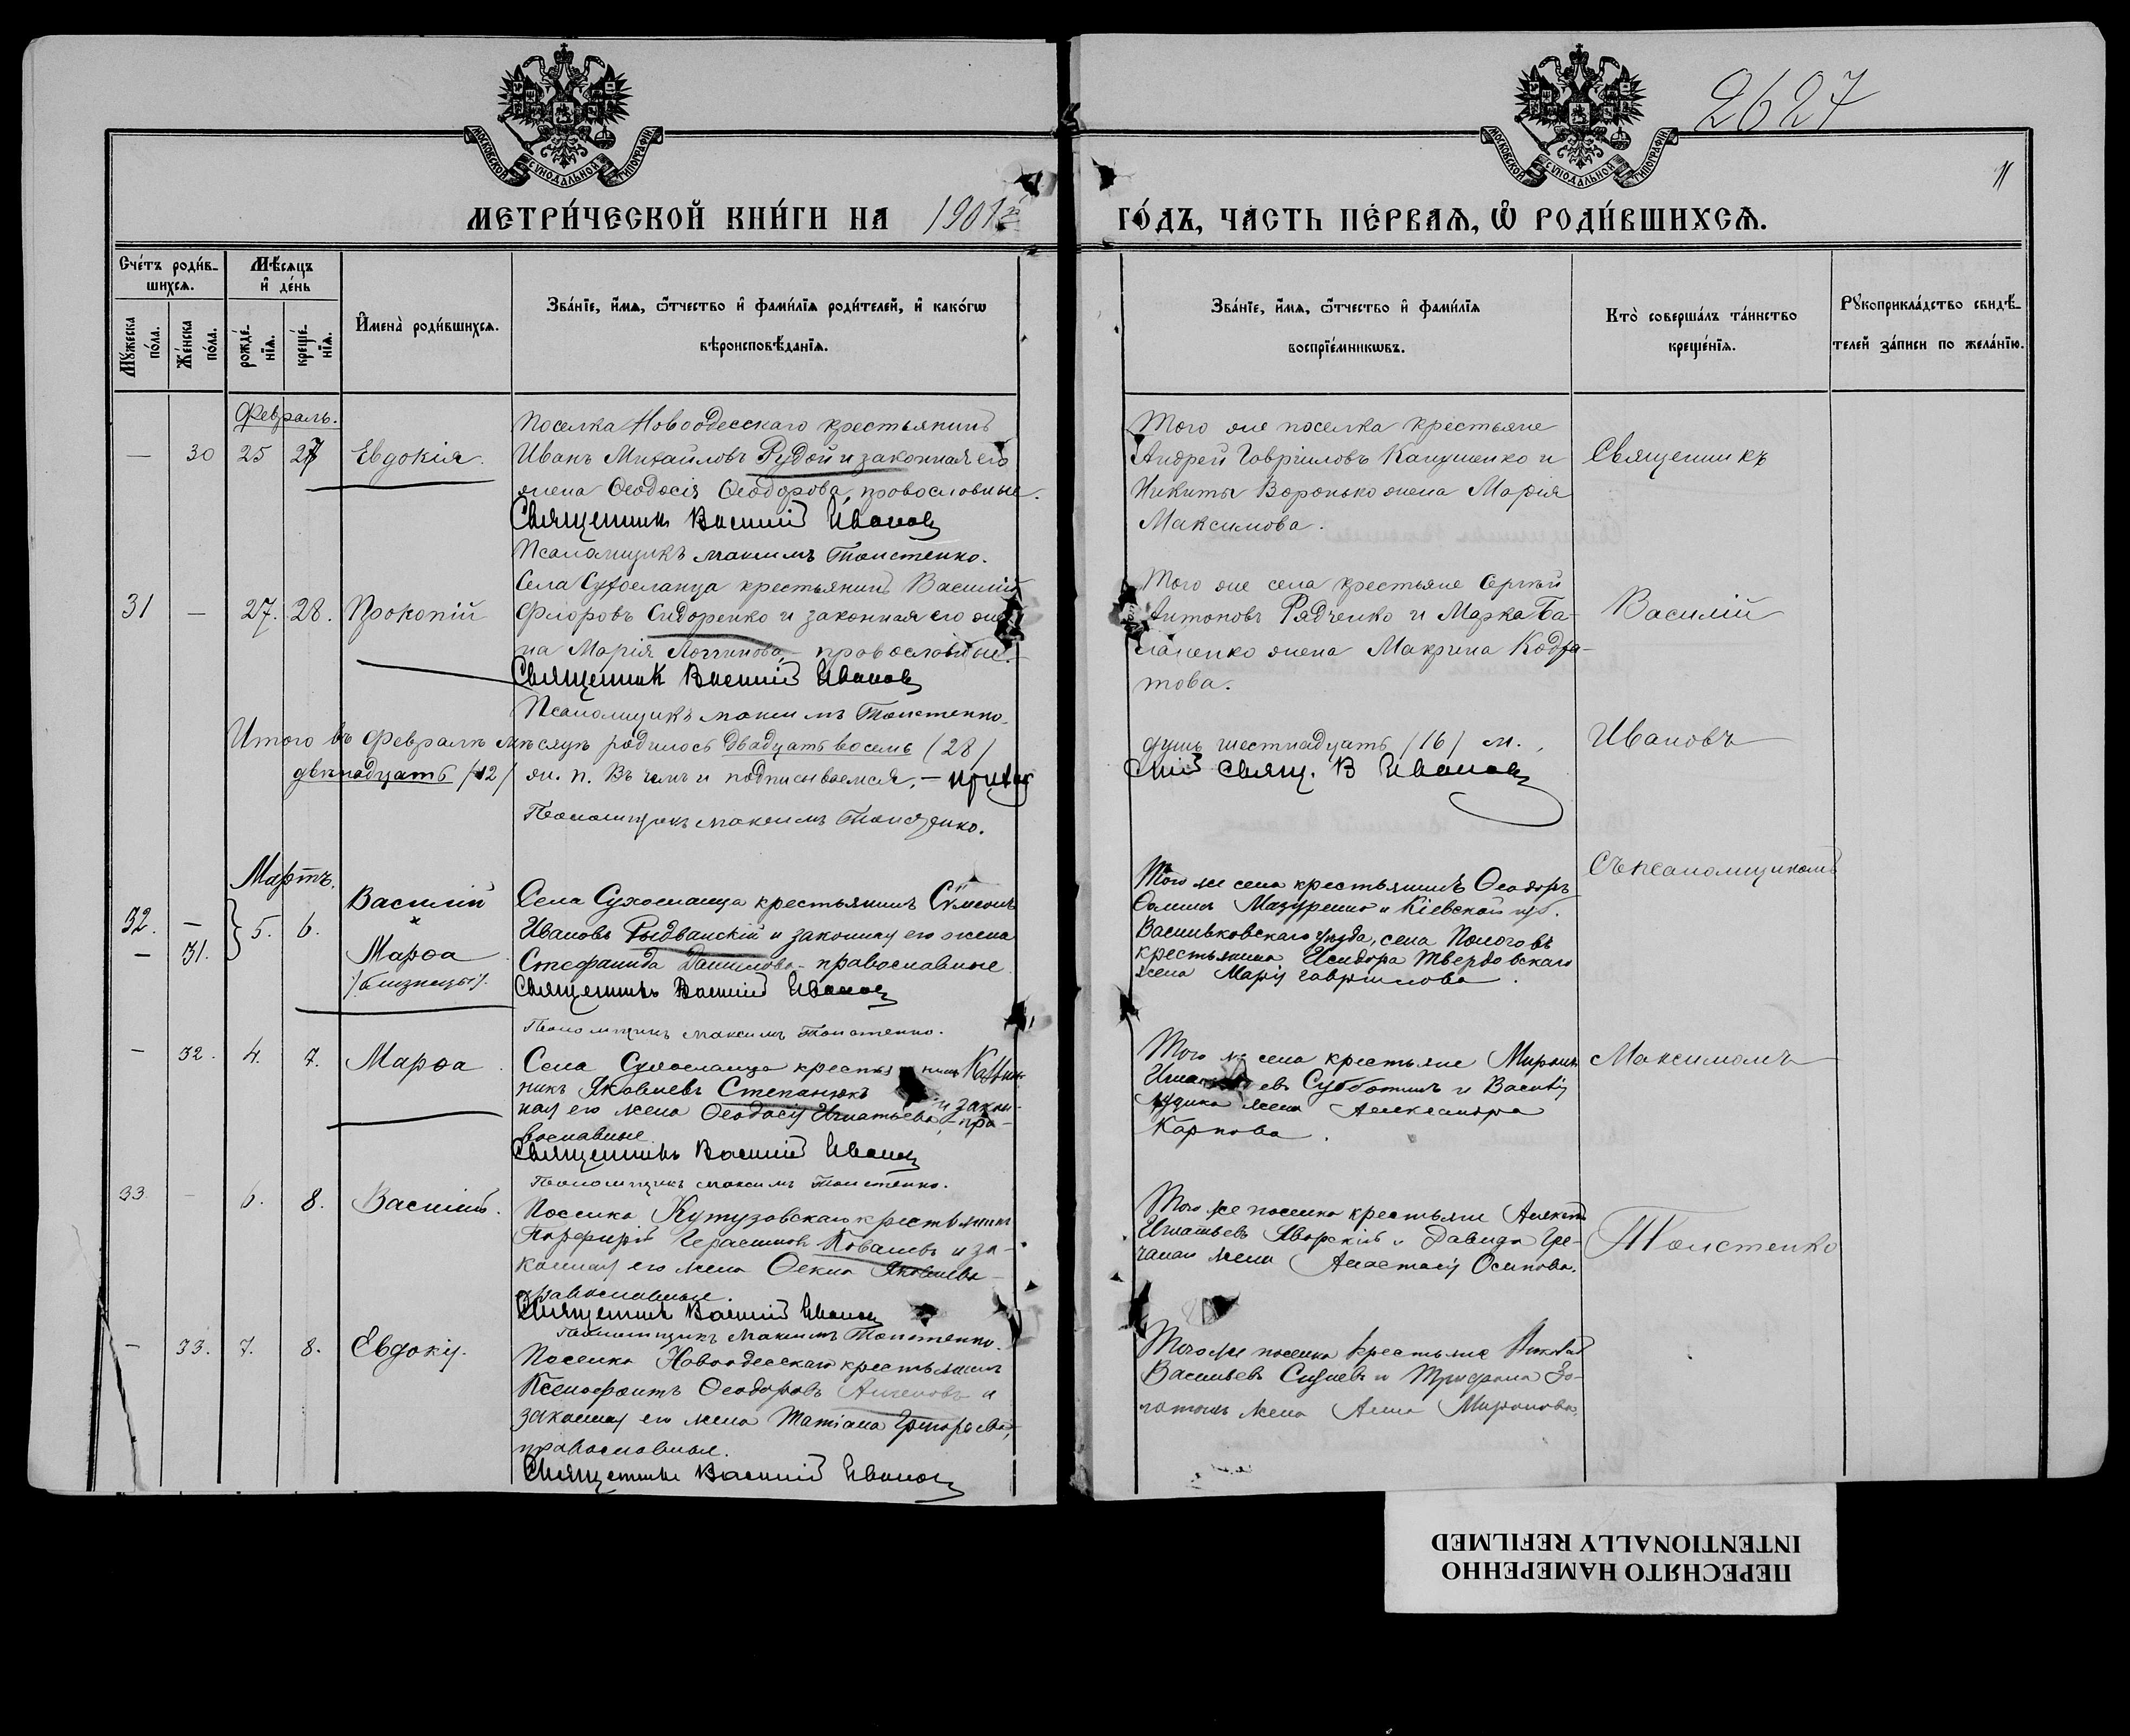 МОСКОВСКОЙ СУНОДАЛЬНОЙ ТИПОГРАФІИ
МОСКОВСКОЙ СУНОДАЛЬНОЙ ТИПОГРАФІИ
2627
11
МЕТРИ́ЧЕСКОЙ КНИ́ГИ НА 1901
ГО́ДЪ, ЧА́СТЬ ПЕ́РВАѦ, Ѡ҆ РОДИ́ВШИХСѦ.
Сче́тъ роди́в-
шихсѧ.
Мѣ́сѧцъ
и҆ де́нь
Мꙋ́жеска
по́ла.
Же́нска
по́ла.
рожде́-
нїѧ.
креще́-
нїѧ.
И҆мена̀ роди́вшихсѧ.
Зва́нїе, и҆́мѧ, ѻ҆́тчество и҆ фами́лїѧ роди́телей, и҆ како́гѡ
вѣроисповѣ́данїѧ.
Зва́нїе, и҆́мѧ, ѻ҆́тчество и҆ фами́лїѧ
воспрїе́мникѡвъ.
Кто̀ соверша́лъ та́инство
креще́нїѧ.
Рꙋкоприкла́дство свидѣ́-
телей за́писи по жела́нїю.
Февраль.
— 30 25 27 Евдокія.
Поселка Новоодесскаго крестьянинъ
Иванъ Михайловъ Рудой и законная его
жена Ѳеодосія Ѳеодорова, православные.
Священникъ Василій Ивановъ
Псаломщикъ Максимъ Толстенко.
Того же поселка крестьяне
Андрей Гавріиловъ и
Никиты Воронько жена Марія
Максимова.
Священникъ
31 — 27. 28. Прокопій
Села Сухоеланца крестьянинъ Василій
Флоровъ Сидоренко и законная его же-
на Марія Логгинова, – православные.
Священникъ Василій Ивановъ
Псаломщикъ Максимъ Толстенко.
Того же села крестьяне Сергѣй
Антоновъ Рядченко и Марка Ба-
лаценко жена Макрина Кодра-
това.
Василій
Итого въ Февралѣ мѣсяцѣ родилось двадцать восемь (28)
душъ шестнадцать (16) м.,
двѣнадцать (12) ж. п. Въ чемъ и подписываемся. –
Свящ. В Ивановъ
Псаломщикъ Максимъ Толстенко.
Ивановъ
Съ псаломщикомъ
Мартъ.
32. — 5. 6. Василій
— 31. Марѳа
/близнецы/.
Села Сухоеланца крестьянинъ Сѵмеонъ
Ивановъ Рыдванскій и законная его жена
Стефанида Данилова – православные
Священникъ Василій Ивановъ
Псаломщикъ Максимъ Толстенко.
Того же села крестьянинъ Ѳеодоръ
Ѳоминъ Мазуренко и Кіевской губ.
Васильковскаго уѣзда, села Пологовъ
крестьянина Исидора Твердовскаго
жена Марія Гавриилова.
- 32. 4. 7. Марѳа
Села Сухоеланца крестьянинъ
никъ Яковлевъ Степанюкъ и закон-
ная его жена Ѳеодосія Игнатьева, – пра-
вославные
Священникъ Василій Ивановъ
Псаломщикъ Максимъ Толстенко.
Того же села крестьяне Миронъ
Субботинъ и Василія
жена Александра
Карпова.
Максимомъ
33 — 6. 8. Василій.
Поселка Кутузовскаго крестьянинъ
Порфирій Герасимовъ Ковалевъ и за-
конная его жена Ѳекла Яковлева –
православные.
Священникъ Василій Ивановъ
Псаломщикъ Максимъ Толстенко.
Того же поселка крестьяне Алексѣй
Игнатьевъ Яворскій и Давида Гре-
чаная жена Анастасія Осипова.
Толстенко
— 33. 7. 8. Евдокія.
Поселка Новоодесскаго крестьянинъ
Ксенофонтъ Ѳеодоровъ и
законная его жена Татіана Григорьева,
православные.
Священникъ Василій Ивановъ
Того же поселка крестьяне
Васильевъ и Трифона Зо-
жена Анна Миронова.
ПЕРЕСНЯТО НАМЕРЕННО
INTENTIONALLY REFILMED